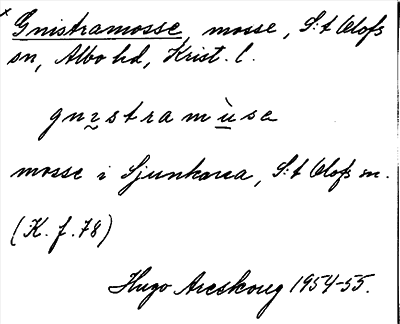 x Gnistramosse, mosse, S:t Olofs
sn, Albo hd, Krist. l.
gnɪstramùsa
mosse i Sjunkarea, S:t Olofs sn.
(K. f. 78)
Hugo Areskoug 1954-55.